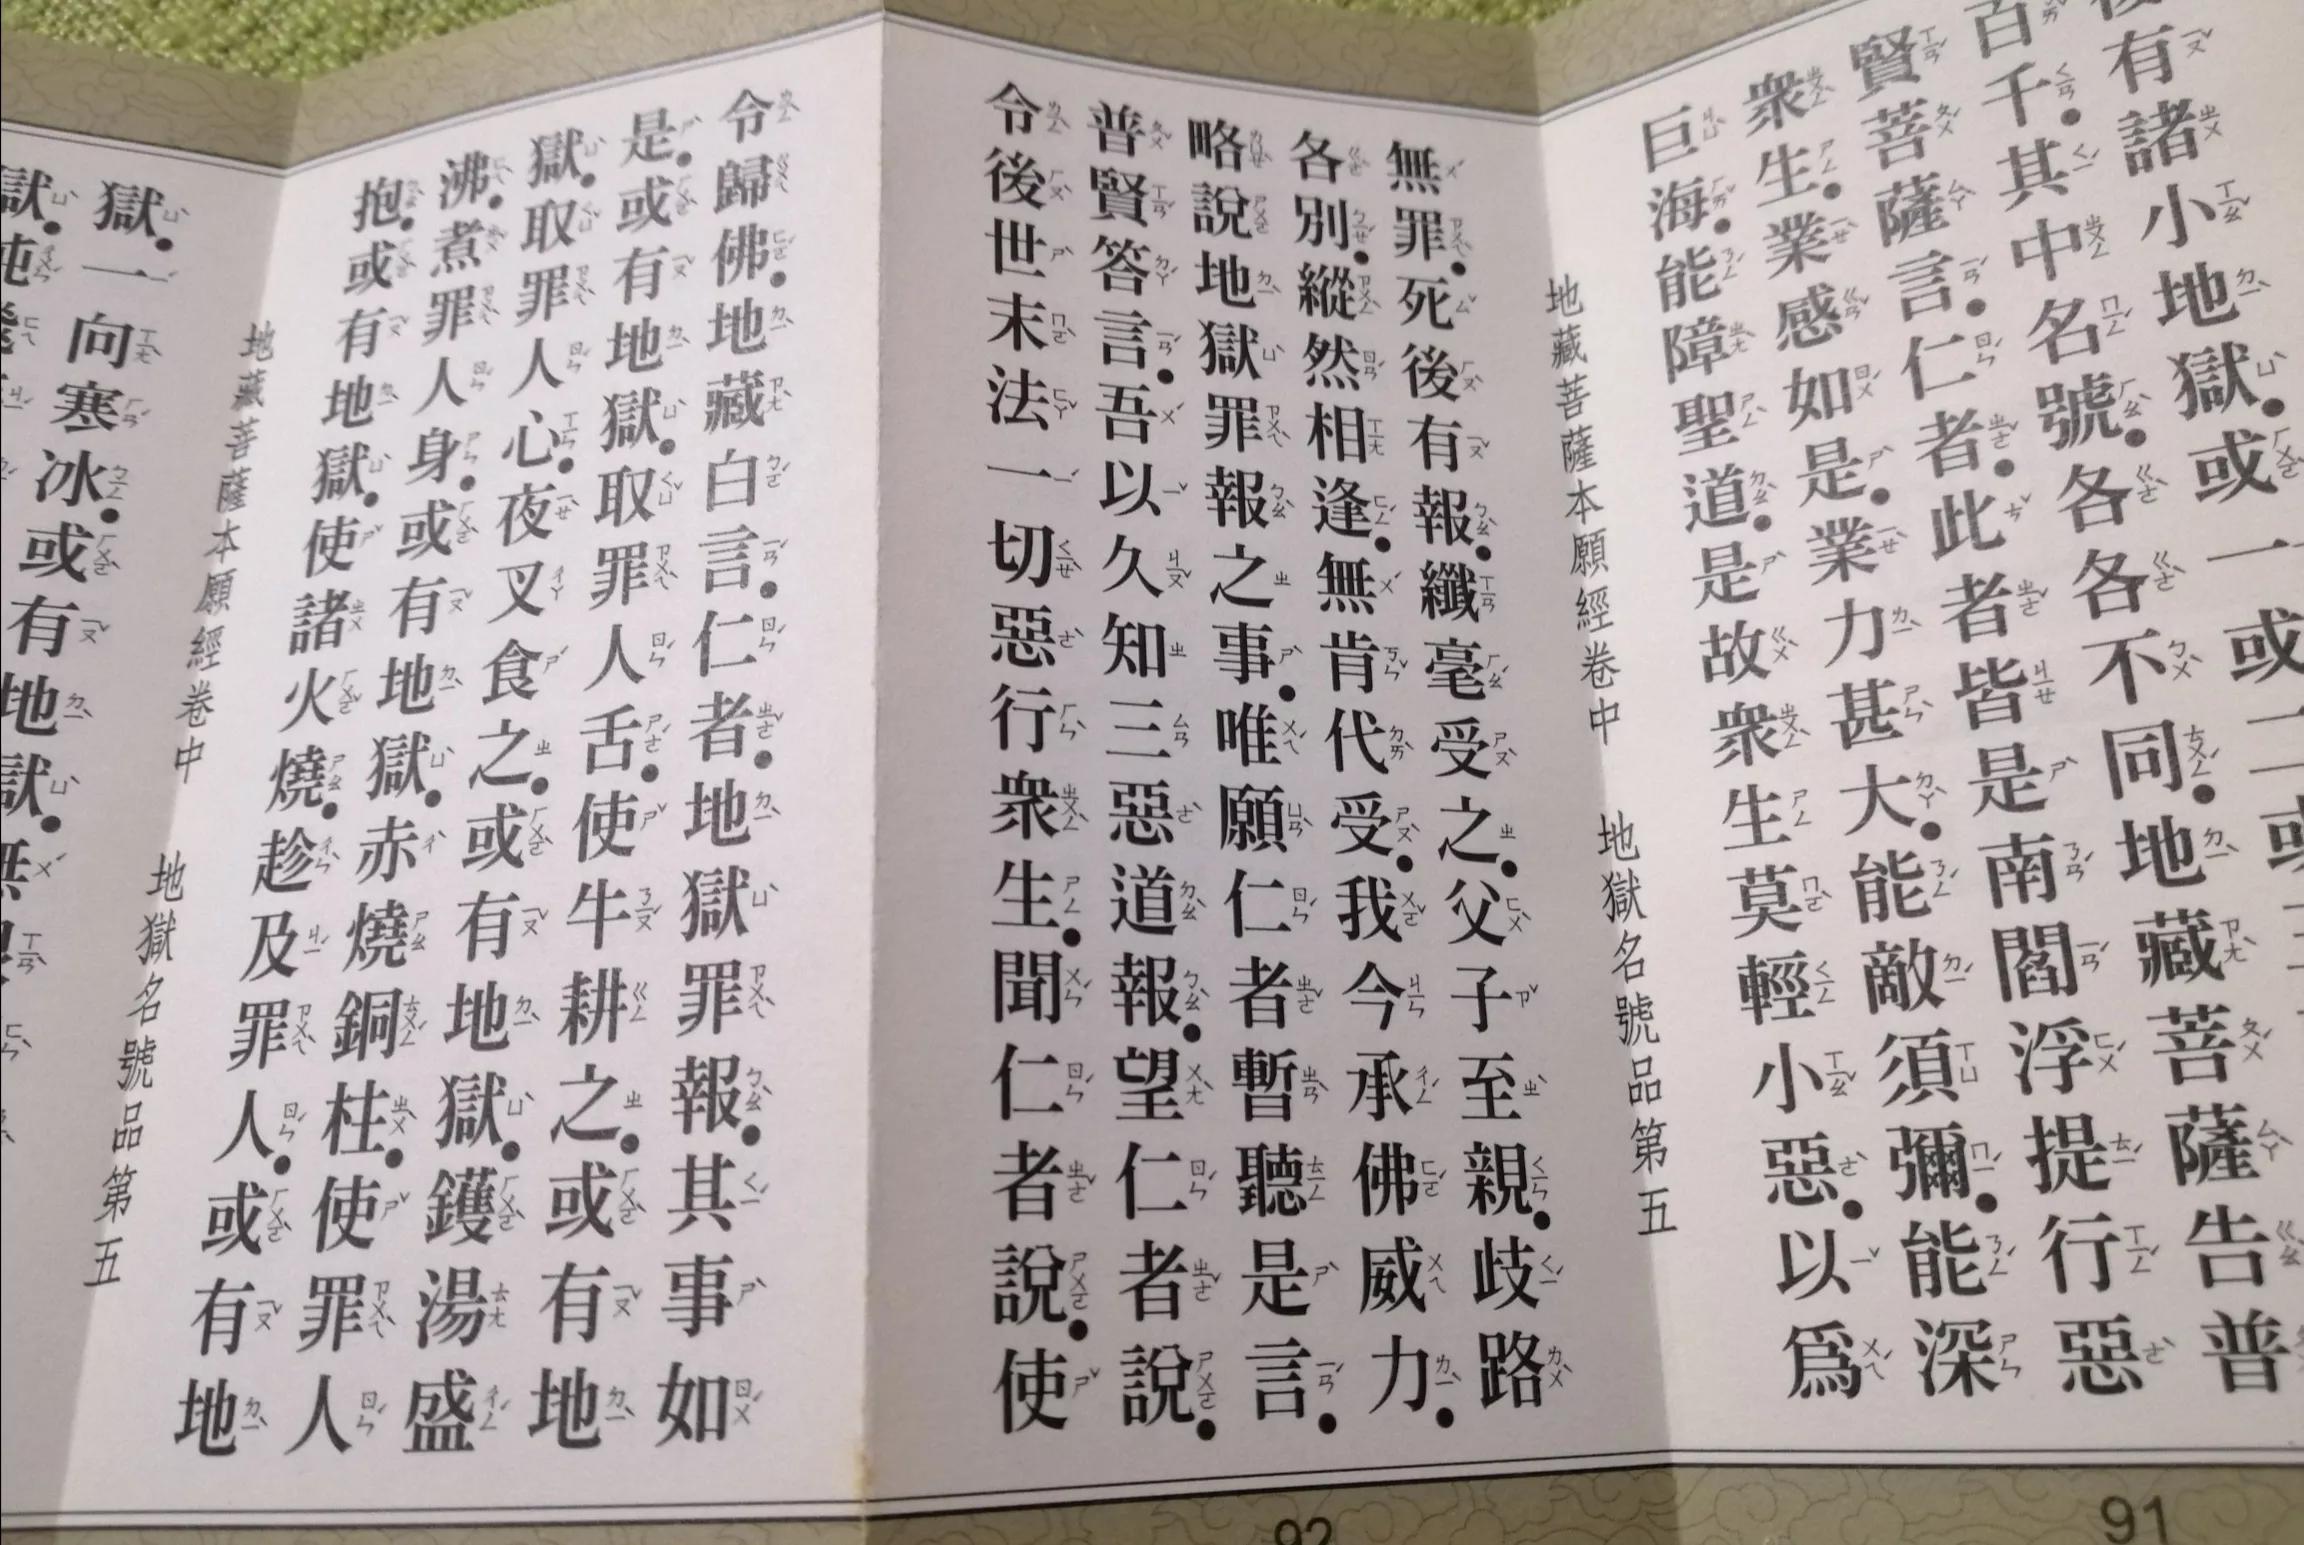 有諸小地獄。或一或二或
百千。其中名號。各各不同。地藏菩薩告普
賢菩薩言。仁者。此者皆是南閻浮提行惡
衆生。業感如是。業力甚大。能敵須彌。能深
巨海。能障聖道。是故衆生莫輕小惡。以爲
91
地藏菩薩本願經卷中 地獄名號品第五
無罪。死後有報。纖毫受之。父子至親。歧路
各別。縱然相逢。無肯代受。我今承佛威力。
略說地獄罪報之事。唯願仁者暫聽是言。
普賢答言。吾以久知三惡道報。望仁者說。
令後世末法一切惡行衆生。聞仁者說。使
92
令歸佛。地藏白言。仁者。地獄罪報。其事如
是。或有地獄。取罪人舌。使牛耕之。或有地
獄。取罪人心。夜叉食之。或有地獄。鑊湯盛
沸。煮罪人身。或有地獄。赤燒銅柱。使罪人
抱。或有地獄。使諸火燒。趁及罪人。或有地
地藏菩薩本願經卷中 地獄名號品第五
獄。一向寒冰。或有地獄。無